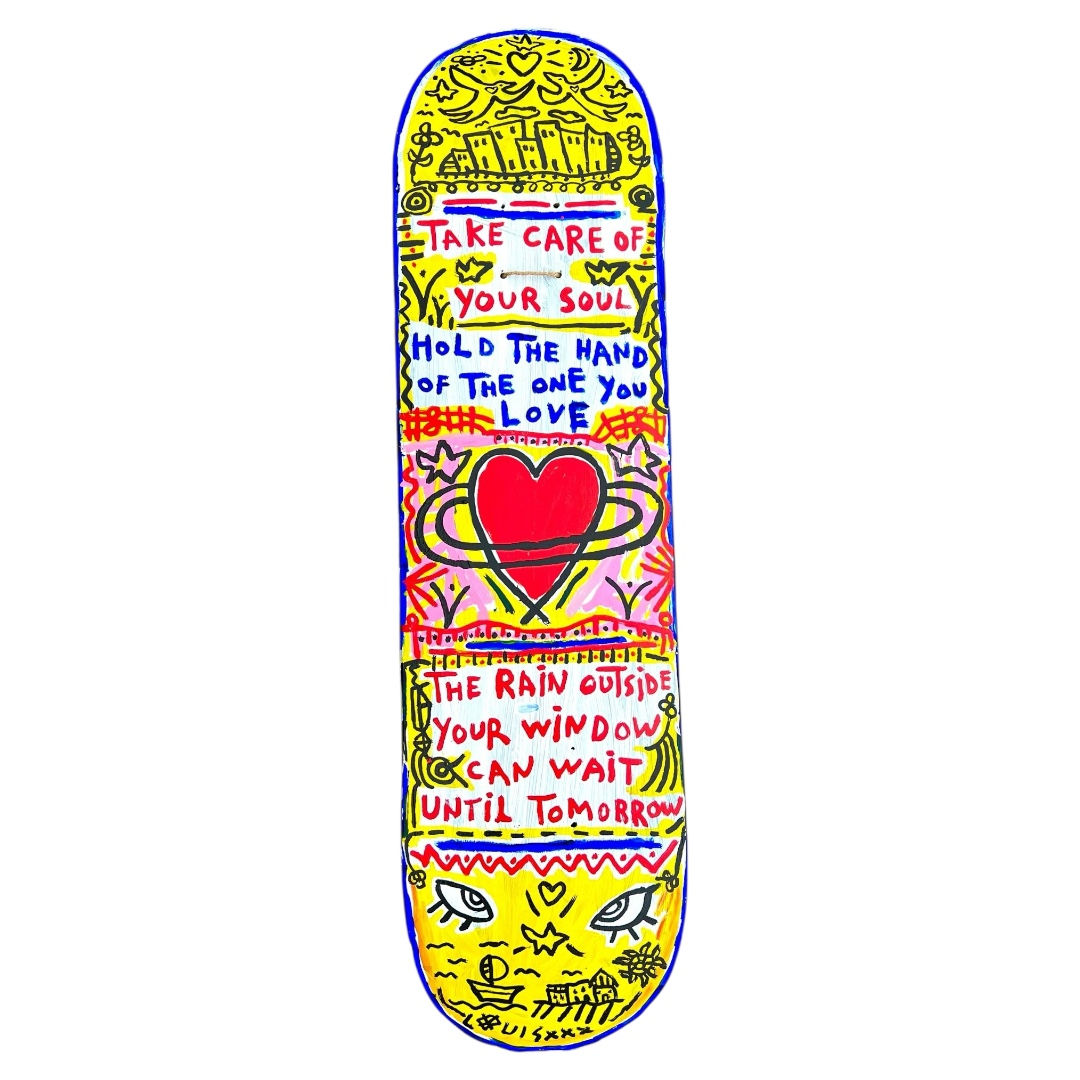 TAKE CARE OF
YOUR SOUL
HOLD THE HAND
OF THE ONE YOU
LOVE
THE RAiN OUTSiDE
YOUR WiNDOW
CAN WAiT
UNTiL TOMORROW
LOUiSxxx